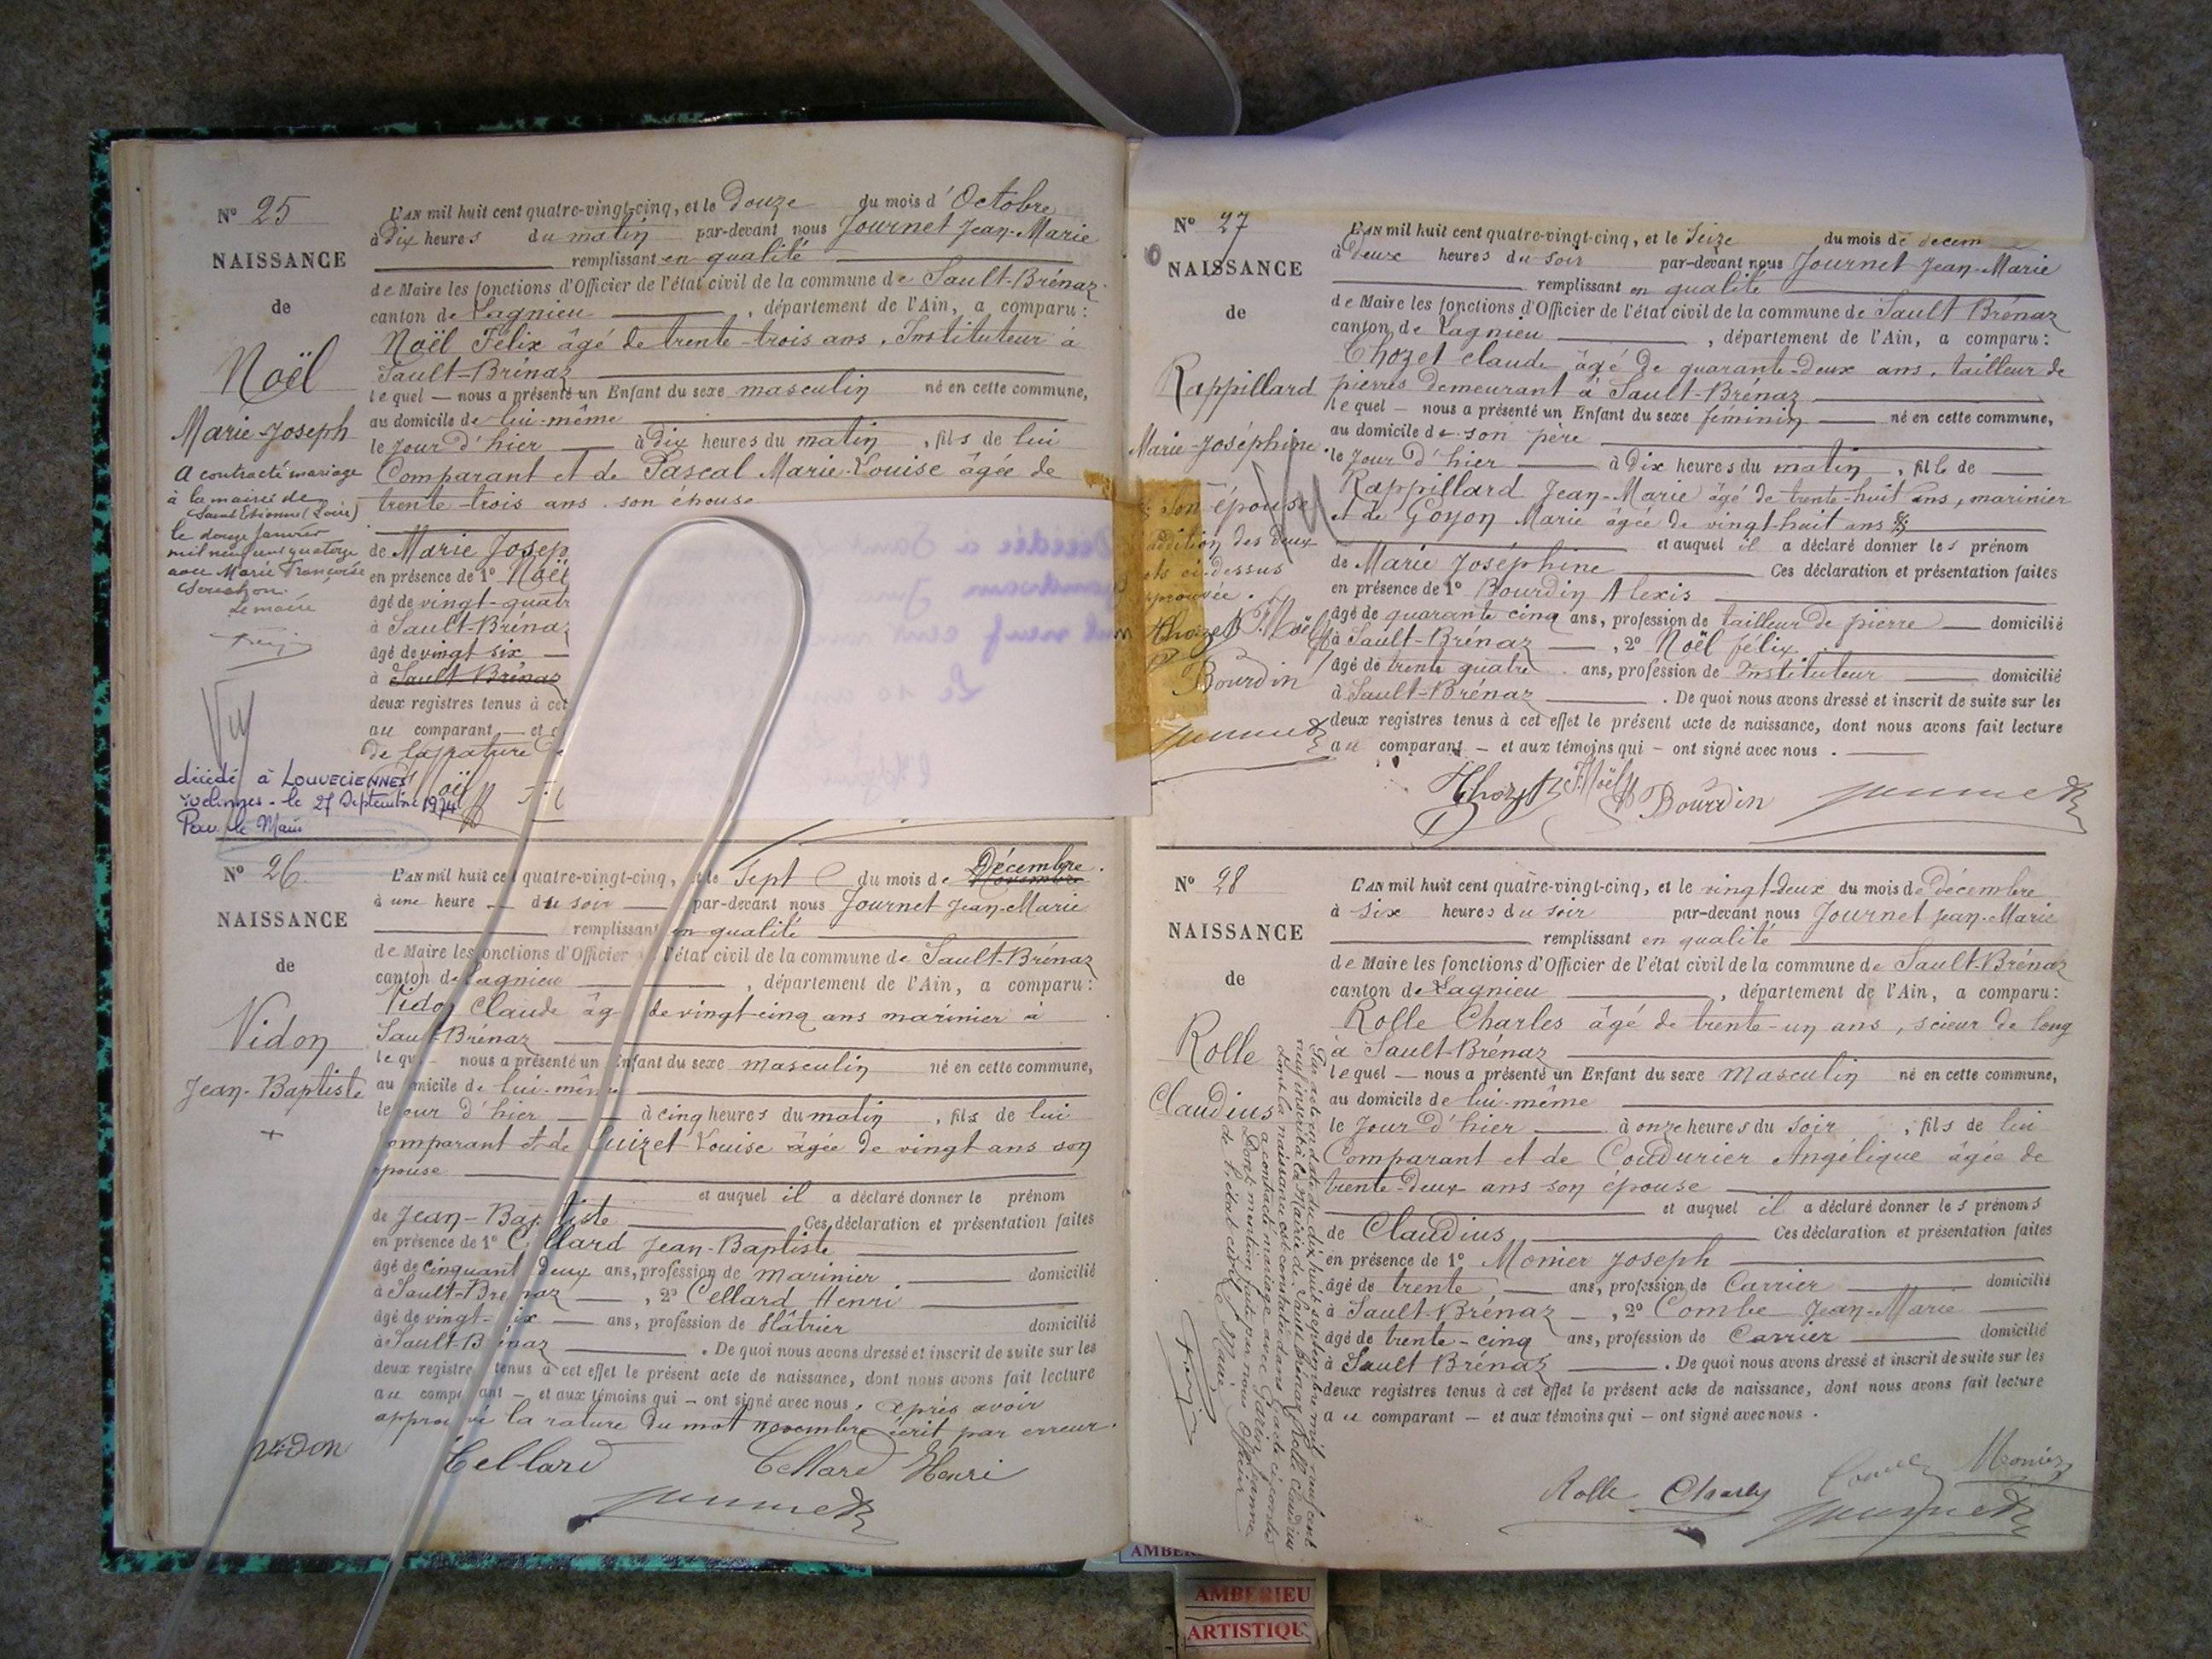 Nº 25
NAISSANCE
de
Noël
Marie-Joseph
A contracté mariage
à la mairie de
Saint Etienne (Loire)
le douze Janvier
mil neuf cent quatorze
avec Marie Françoise
Le maire
Vu
décédé à LOUVECIENNES
Yvelines - le 27 Septembre 1974
Pour le Maire
L'AN mil huit cent quatre-vingt-cinq, et le douze du mois d'Octobre
à dix heures du matin par-devant nous Journet Jean-Marie
remplissant en qualité
de Maire les fonctions d'Officier de l'état civil de la commune de Sault-Brénaz
canton de Lagnieu, département de l'Ain, a comparu:
Noël Félix âgé de trente-trois ans, Instituteur à
Sault-Brénaz
lequel — nous a présenté un Enfant du sexe masculin né en cette commune,
au domicile de lui-même
le Jour d'hier à dix heures du matin, fils de lui
Comparant et de Pascal Marie-Louise âgée de
trente-trois ans son épouse
de Marie Josep
en présence de 1º Noël
âgé de vingt-quatr
à Sault-Brénaz
âgé de vingt six
à Sault-Brénaz
deux registres tenus à cet
au comparant — et
de la rature de
Nº 26
NAISSANCE
de
Vidon
Jean-Baptiste
L'AN mil huit cent quatre-vingt-cinq, et le Sept du mois de Novembre Décembre
à une heure — du soir — par-devant nous Journet Jean-Marie
remplissant en qualité
de Maire les fonctions d'Officier de l'état civil de la commune de Sault-Brénaz
canton de Lagnieu, département de l'Ain, a comparu:
Vidon Claude âgé de vingt-cinq ans marinier à
Sault-Brénaz
lequel nous a présenté un Enfant du sexe masculin né en cette commune,
au domicile de lui-même
le jour d'hier — à cinq heures du matin, fils de lui
comparant et de Guizet Louise âgée de vingt ans son
épouse
et auquel il a déclaré donner le prénom
de Jean-Baptiste Ces déclaration et présentation faites
en présence de 1º Cellard Jean-Baptiste
âgé de cinquante deux ans, profession de marinier domicilié
à Sault-Brénaz, 2º Cellard Henri
âgé de vingt-six ans, profession de Plâtrier domicilié
à Sault-Brénaz. De quoi nous avons dressé et inscrit de suite sur les
deux registres tenus à cet effet le présent acte de naissance, dont nous avons fait lecture
au comparant — et aux témoins qui — ont signé avec nous, après avoir
approuvé la rature du mot novembre écrit par erreur.
Vidon Cellard Cellard Henri
Nº 27
NAISSANCE
de
Rappillard
Marie-Joséphine
son épouse
addition des deux
ci-dessus
Thozet F. Noël
Bourdin
L'AN mil huit cent quatre-vingt-cinq, et le Seize du mois de decem
à deux heures du soir par-devant nous Journet Jean-Marie
remplissant en qualité
de Maire les fonctions d'Officier de l'état civil de la commune de Sault Brénaz
canton de Lagnieu, département de l'Ain, a comparu:
Thozet Claude âgé de quarante-deux ans, tailleur de
pierres demeurant à Sault-Brénaz
lequel — nous a présenté un Enfant du sexe féminin — né en cette commune,
au domicile de son père
le Jour d'hier — à Dix heures du matin, fille de
Rappillard Jean-Marie âgé de trente-huit ans, marinier
et de Goyon Marie âgée de vingt-huit ans
et auquel il a déclaré donner les prénom
de Marie Joséphine Ces déclaration et présentation faites
en présence de 1º Bourdin Alexis
âgé de quarante cinq ans, profession de tailleur de pierre — domicilié
à Sault-Brénaz, 2º Noël félix
âgé de trente quatre ans, profession de Instituteur domicilié
à Sault-Brénaz. De quoi nous avons dressé et inscrit de suite sur les
deux registres tenus à cet effet le présent acte de naissance, dont nous avons fait lecture
au comparant — et aux témoins qui — ont signé avec nous.
Thozet F. Noël Bourdin
Nº 28
NAISSANCE
de
Rolle
Claudius
Par acte en date du dix huit septembre mil neuf cent
neuf inscrit à la Mairie de Sault-Brénaz, Rolle Claudius
dont la naissance est constatée dans l'acte ci-contre
a contracté mariage avec
Dont mention faite par nous Officier
de l'état civil
L'AN mil huit cent quatre-vingt-cinq, et le vingt-deux du mois de Décembre
à six heures du soir par-devant nous Journet Jean-Marie
remplissant en qualité
de Maire les fonctions d'Officier de l'état civil de la commune de Sault-Brénaz
canton de Lagnieu, département de l'Ain, a comparu:
Rolle Charles âgé de trente-un ans, scieur de long
à Sault-Brénaz
lequel — nous a présenté un Enfant du sexe Masculin né en cette commune,
au domicile de lui-même
le Jour d'hier — à onze heures du soir, fils de lui
Comparant et de Coudurier Angélique âgée de
trente-deux ans son épouse
et auquel il a déclaré donner les prénoms
de Claudius Ces déclaration et présentation faites
en présence de 1º Monier Joseph
âgé de trente — ans, profession de Carrier domicilié
à Sault-Brénaz —, 2º Combe Jean-Marie
âgé de trente-cinq ans, profession de Carrier domicilié
à Sault Brénaz. De quoi nous avons dressé et inscrit de suite sur les
deux registres tenus à cet effet le présent acte de naissance, dont nous avons fait lecture
au comparant — et aux témoins qui — ont signé avec nous.
Rolle Charles Monier
AMBERIEU
ARTISTIQU